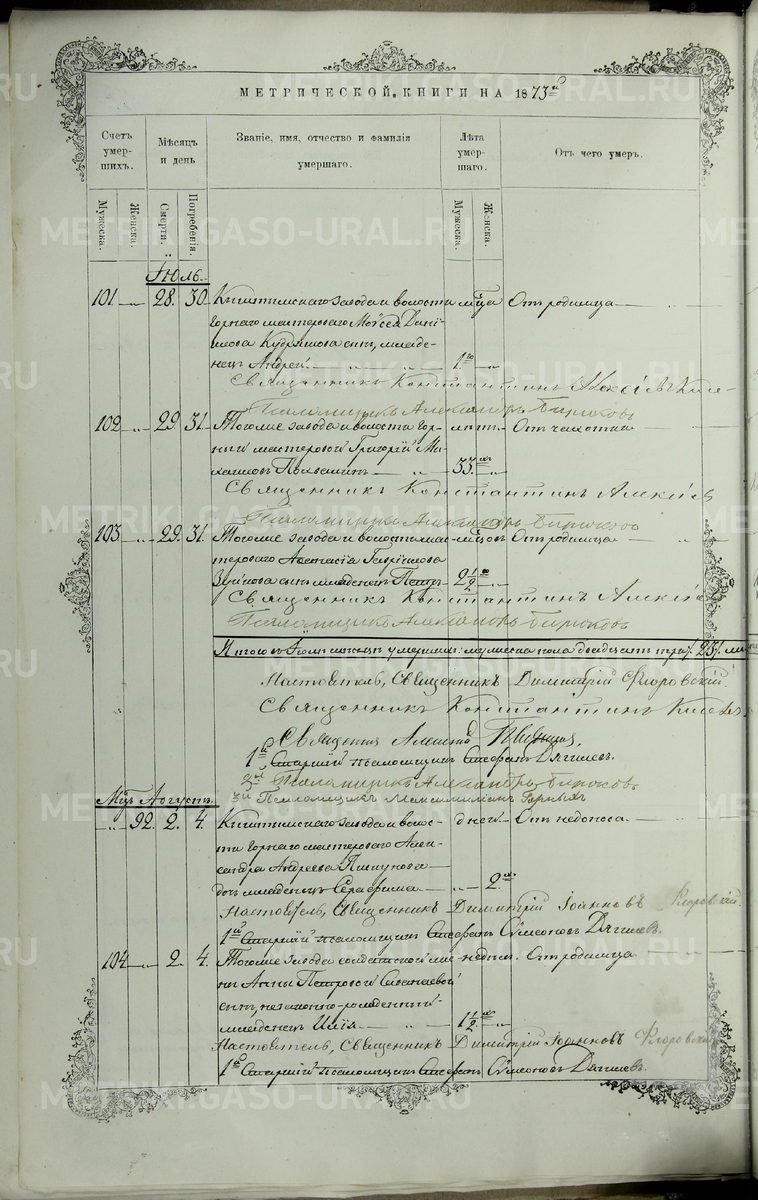 МЕТРИЧЕСКОЙ КНИГИ НА 1873й
Счетъ умер-шихъ.
Мѣсяцъ и день
Званіе, имя, отчество и фамилія умершаго.
Лѣта умер-шаго.
Отъ чего умеръ.
Мужеска.
Женска.
Смерти.
Погребенія.
Мужеска.
Женска.
Іюль
101 28. 30. Кыштымскаго завода и волости мѣсца Отъ родимца
горнаго мастероваго Моѵсея Дани-
лова Кудряшова сынъ, младе-
нецъ Андрей. 1го
Священникъ Константинъ Алексіевъ
Псаломщикъ Александръ Бирюковъ
102 29 31. Тогоже завода и волости гор- лѣтъ Отъ чахотки
ный мастеровой Григорій Ми-
хаиловъ 33.хъ
Священникъ Константинъ Алексіев
Псаломщикъ Александръ Бирюковъ
103 29. 31. Тогоже завода и волости мас- мѣсцовъ Отъ родимца
тероваго Аѳанасія Гавріилова
Зуйкова сынъ младенецъ Петръ 2 1/2
Священникъ Константинъ Алексіе
Псаломщикъ Александръ Бирюковъ
Итого въ Іюлѣ мѣсяцѣ умершихъ: мужеска пола двадцать три 23/.
Настоятель, Священникъ Димитрій Флоровскій
Священникъ Константинъ
Священникъ Алексѣй
1й Старшій псаломщикъ Стефанъ Дягилевъ.
2й Псаломщикъ Александръ Бирюковъ
3й Псаломщикъ Максимиліанъ Горныхъ
Мцъ Августъ
92. 2. 4. Кыштымскаго завода и волос- дней Отъ недоноса
ти горнаго мастероваго Алек-
сандра Андреева Пшунова
дочь младенецъ Серафима 2.
Настоятель, Священникъ Димитрій Іоанновъ Флоровскій.
1й Старшій псаломщикъ Стефанъ Сѵмеоновъ Дягилевъ.
104 2. 4. Тогоже завода солдатской же- недѣл. Отъ родимца
ны Анны Петровой
сынъ, незаконно-рожденный
младенецъ Илія 1 1/2
Настоятель, Священникъ Димитрій Іоанновъ Флоровскій
1й Старшій псаломщикъ Стефанъ Сѵмеоновъ Дягилевъ.
METRIKI.GASO-URAL.RU